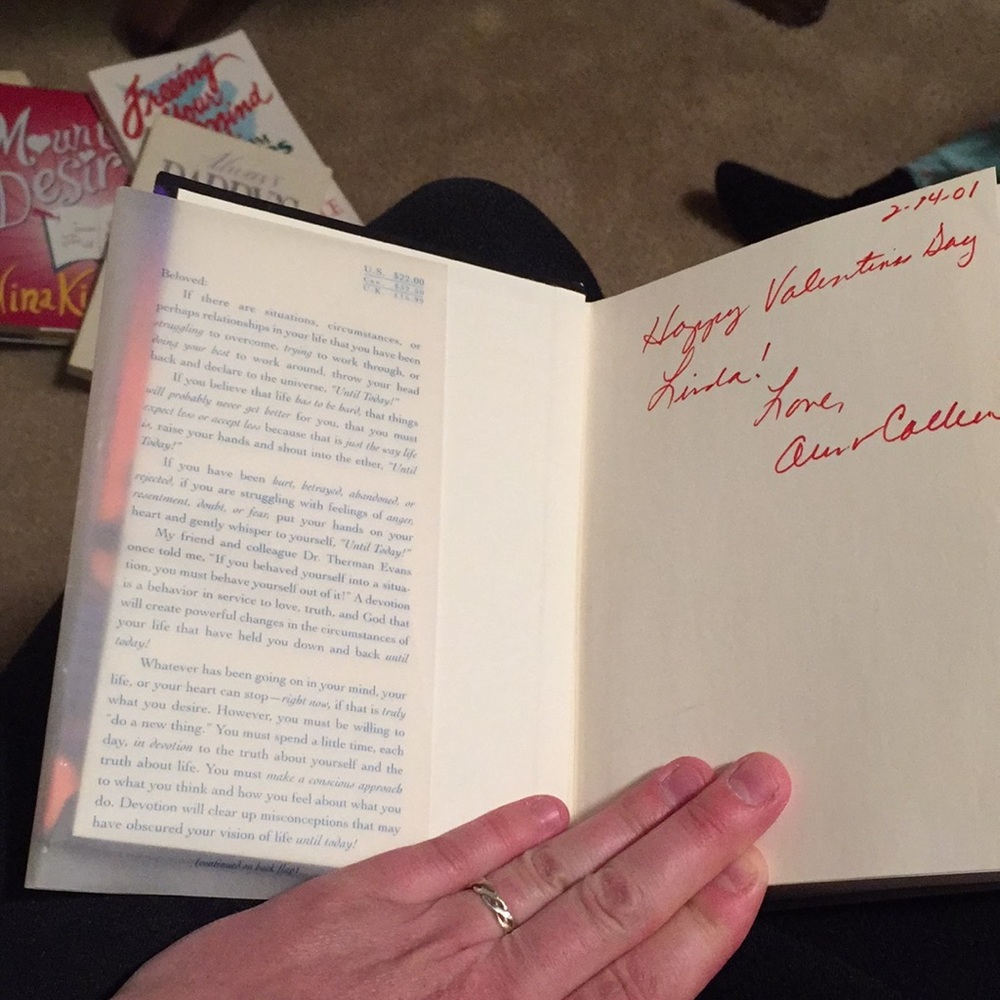 Freeing
Your
Mind
Mount
Desir
Nina Ki
Always
DADDY'S
U.S. $22.00
Beloved:
If there are situations, circumstances, or
perhaps relationships in your life that you have been
struggling to overcome, trying to work through, or
doing your best to work around, throw your head
back and declare to the universe, "Until Today!"
If you believe that life has to be hard, that things
will probably never get better for you, that you must
expect less or accept less because that is just the way life
is, raise your hands and shout into the ether, "Until
Today!"
If you have been hurt, betrayed, abandoned, or
rejected, if you are struggling with feelings of anger,
resentment, doubt, or fear, put your hands on your
heart and gently whisper to yourself, "Until Today!"
My friend and colleague Dr. Therman Evans
once told me, "If you behaved yourself into a situa-
tion, you must behave yourself out of it!" A devotion
is a behavior in service to love, truth, and God that
will create powerful changes in the circumstances of
your life that have held you down and back until
today!
Whatever has been going on in your mind, your
life, or your heart can stop—right now, if that is truly
what you desire. However, you must be willing to
"do a new thing." You must spend a little time, each
day, in devotion to the truth about yourself and the
truth about life. You must make a conscious approach
to what you think and how you feel about what you
do. Devotion will clear up misconceptions that may
have obscured your vision of life until today!
(continued on back flap)
2-14-01
Happy Valentines Day
Linda!
Love,
Colleen